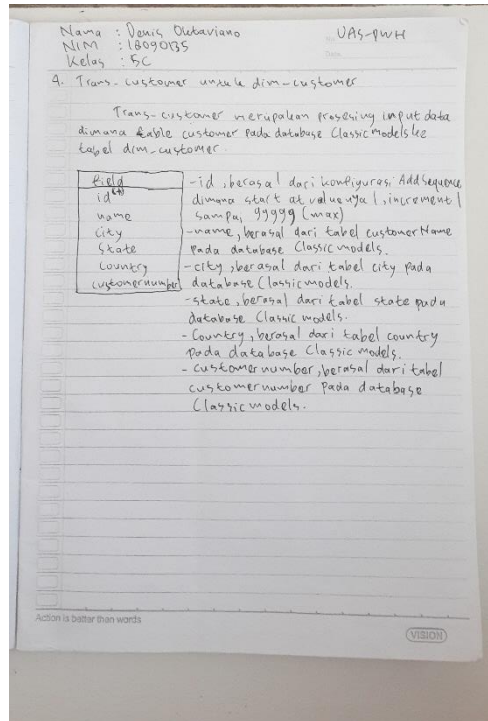 Nama : Denis Oktaviano
UAS-PWH
NIM : 18090135
Kelas : 5C
4. Trans-customer untuk dim-customer
Trans-customer merupakan prosesing input data
dimana table customer pada database Classicmodels ke
tabel dim-customer.
Field
id
name
city
State
Country
customernumber
-id, berasal dari konfigurasi AddSequence
dimana start at valuenya 1, increment 1
sampai 99999 (max)
-name, berasal dari tabel customerName
pada database Classicmodels.
-city, berasal dari tabel city pada
database Classicmodels.
-state, berasal dari tabel state pada
database Classic models.
-Country, berasal dari tabel country
pada database Classic models.
- customernumber, berasal dari tabel
customernumber pada database
Classicmodels.
Action is better than words
VISION